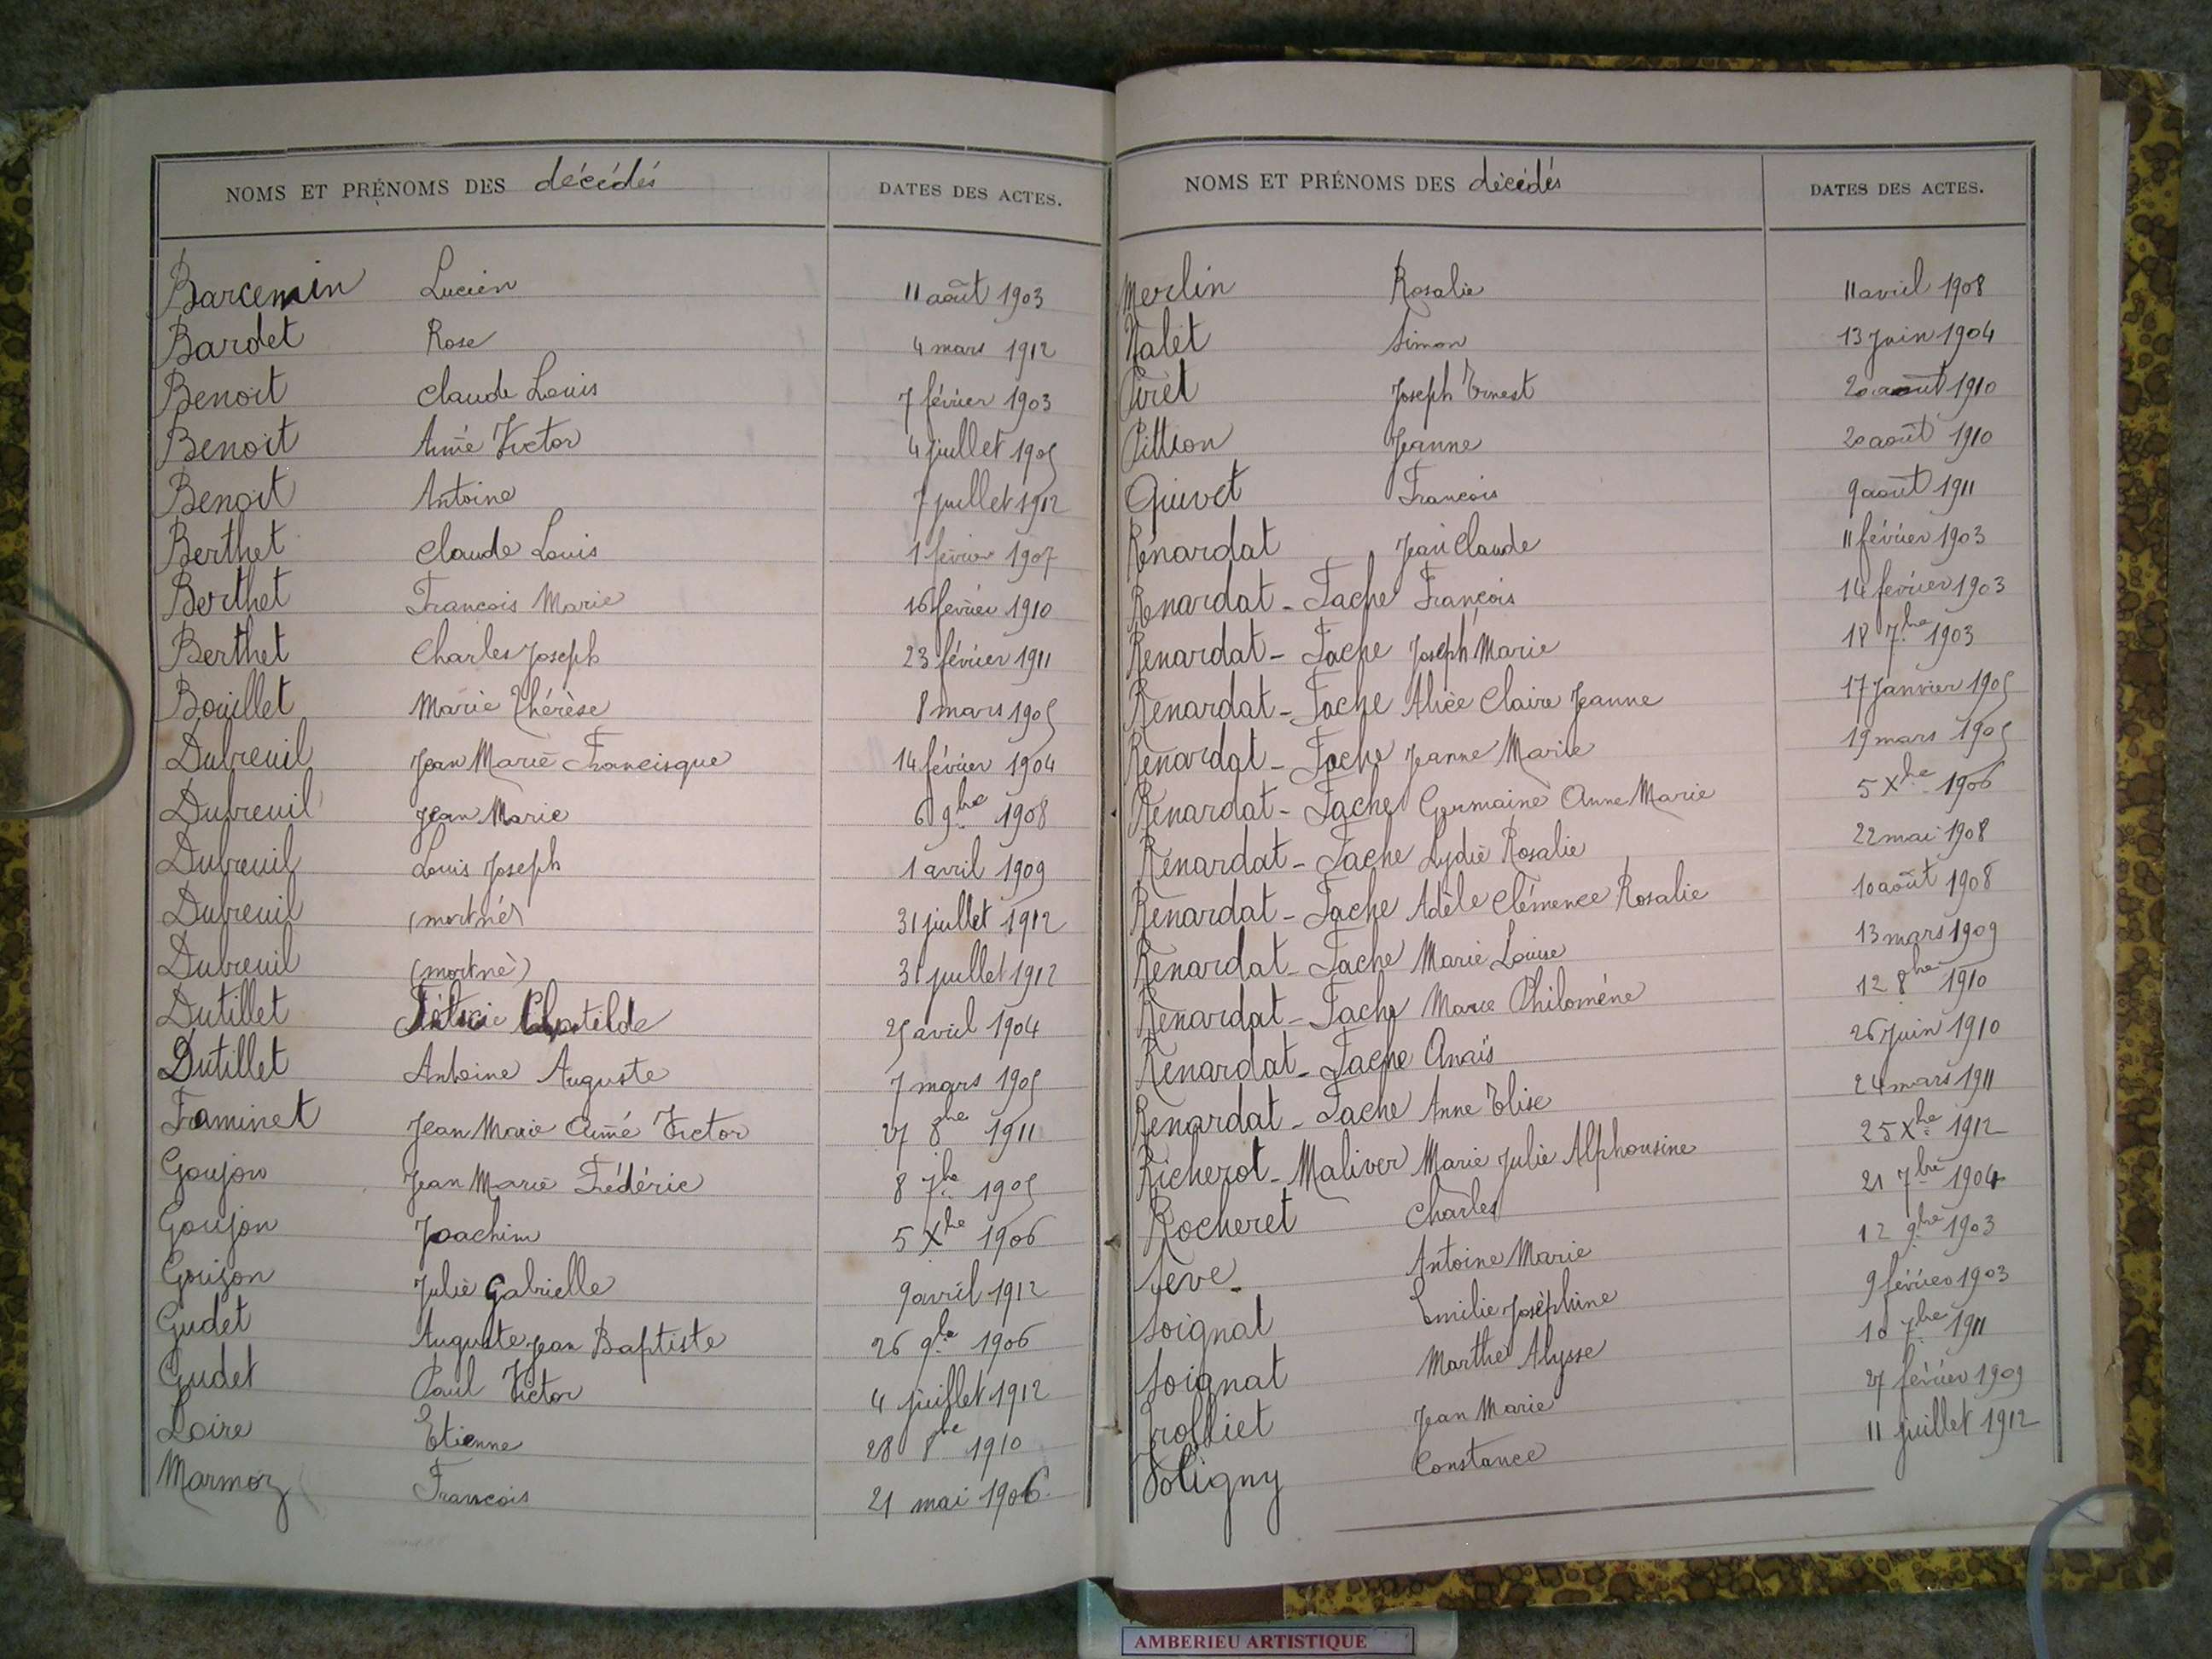 NOMS ET PRÉNOMS DES décédés DATES DES ACTES.
Barcemin Lucien 11 août 1903
Bardet Rose 4 mars 1912
Benoit Claude Louis 7 février 1903
Benoit Aimé Victor 4 juillet 1905
Benoit Antoine 7 juillet 1912
Berthet Claude Louis 1 février 1907
Berthet François Marie 16 février 1910
Berthet Charles Joseph 23 février 1911
Bouillet Marie Thérèse 8 mars 1905
Dubreuil Jean Marie Francisque 14 février 1904
Dubreuil Jean Marie 6 9bre 1908
Dubreuil Louis Joseph 1 avril 1909
Dubreuil (mort né) 31 juillet 1912
Dubreuil (mort né) 31 juillet 1912
Dutillet Clotilde 25 avril 1904
Dutillet Antoine Auguste 7 mars 1905
Framinet Jean Marie Aimé Victor 27 8bre 1911
Goujon Jean Marie Frédéric 8 7bre 1905
Goujon Joachim 5 Xbre 1906
Goujon Julie Gabrielle 9 avril 1912
Gudet Auguste Jean Baptiste 26 9bre 1906
Gudet Paul Victor 4 juillet 1912
Loire Etienne 28 8bre 1910
Marmoz François 21 mai 1906
NOMS ET PRÉNOMS DES décédés DATES DES ACTES.
Merlin Rosalie 11 avril 1908
Nalet Simon 13 Juin 1904
Piret Joseph Ernest 20 août 1910
Pittion Jeanne 20 août 1910
Quivet François 9 août 1911
Renardat Jean Claude 11 février 1903
Renardat - Fache François 14 février 1903
Renardat - Fache Joseph Marie 18 7bre 1903
Renardat - Fache Alice Claire Jeanne 17 Janvier 1905
Renardat - Fache Jeanne Marie 19 mars 1905
Renardat - Fache Germaine Anne Marie 5 Xbre 1906
Renardat - Fache Lydie Rosalie 22 mai 1908
Renardat - Fache Adèle Clémence Rosalie 10 août 1908
Renardat - Fache Marie Louise 13 mars 1909
Renardat - Fache Marie Philomène 12 8bre 1910
Renardat - Fache Anaïs 26 Juin 1910
Renardat - Fache Anne Elise 24 mars 1911
Richerot - Maliver Marie Julie Alphonsine 25 Xbre 1912
Rocheret Charles 21 7bre 1904
Sève Antoine Marie 12 9bre 1903
Soignat Emilie Joséphine 9 février 1903
Soignat Marthe Alysse 10 7bre 1911
Trolliet Jean Marie 27 février 1909
Voligny Constance 11 juillet 1912
AMBERIEU ARTISTIQUE